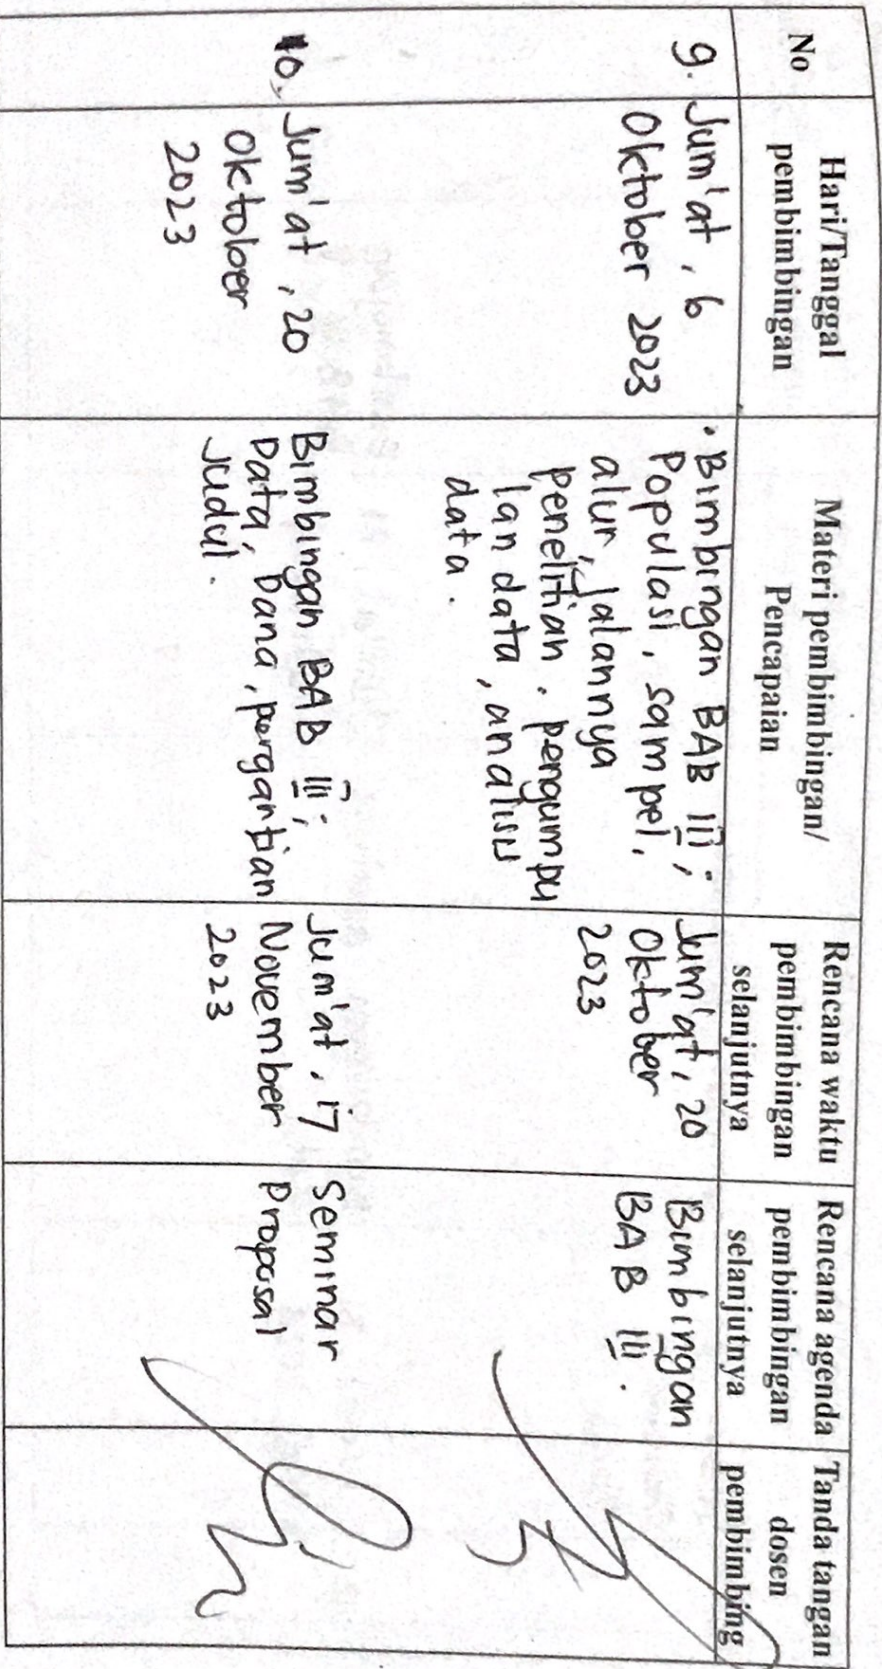 No
Hari/Tanggal
pembimbingan
Materi pembimbingan/
Pencapaian
Rencana waktu
pembimbingan
selanjutnya
Rencana agenda
pembimbingan
selanjutnya
Tanda tangan
dosen
pembimbing
9.
Jum'at, 6
Oktober 2023
• Bimbingan BAB III;
Populasi, sampel,
alur, jalannya
penelitian. pengumpu
lan data, analisis
data.
Jum'at, 20
Oktober
2023
Bimbingan
BAB III.
10.
Jum'at, 20
Oktober
2023
Bimbingan BAB III;
Data, Dana, pergantian
Judul.
Jum'at, 17
November
2023
Seminar
Proposal